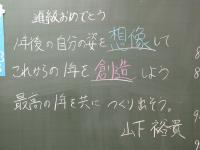 進級おめでとう
1年後の自分の姿を想像して
これからの1年を創造しよう
最高の1年を共につくり出そう。
山下 裕貴